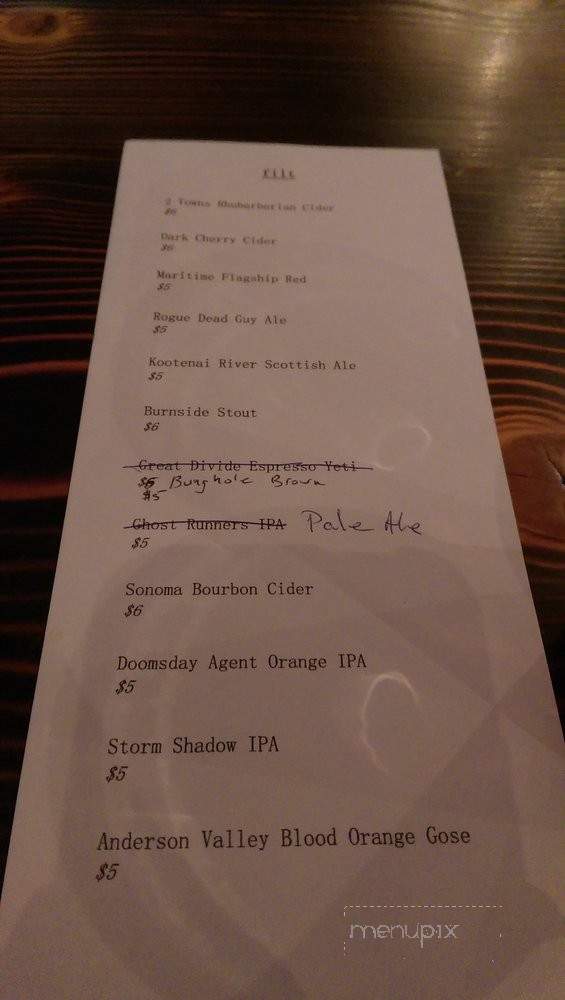 filt
2 Towns Rhubarbarian Cider
$6
Dark Cherry Cider
$6
Maritime Flagship Red
$5
Rogue Dead Guy Ale
$5
Kootenai River Scottish Ale
$5
Burnside Stout
$6
Great Divide Espresso Yeti
$6 Bunghole Brown
$5
Ghost Runners IPA Pale Ale
$5
Sonoma Bourbon Cider
$6
Doomsday Agent Orange IPA
$5
Storm Shadow IPA
$5
Anderson Valley Blood Orange Gose
$5
menupix